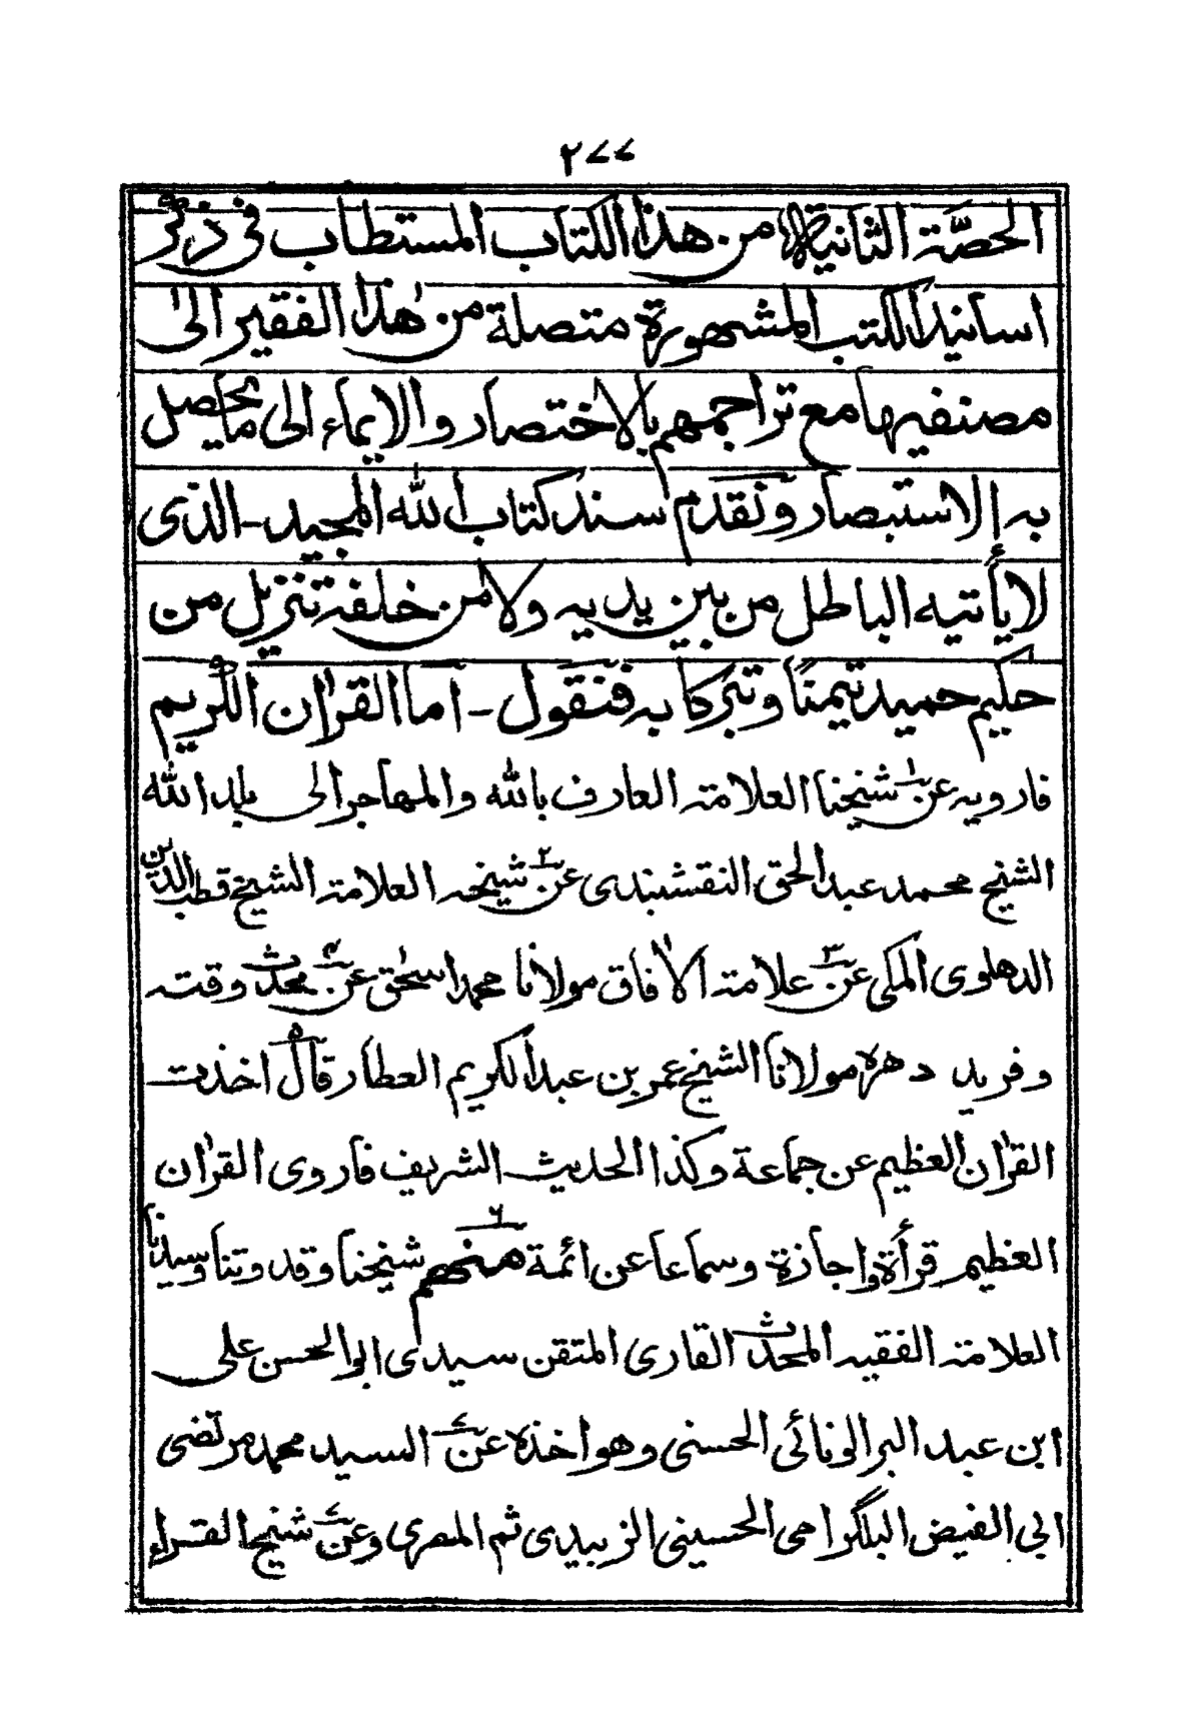 ٢٧٧
الحصّة الثانية من هذا الكتاب المستطاب فى ذكر
اسانيد الكتب المشهورة متصلة من هٰذا الفقير الىٰ
مصنفيها مع تراجمهم بالاختصار والايماء الى ما يحصل
به الاستبصار ونقدم سند كتاب الله المجيد - الذى
لا يأتيه الباطل من بين يديه ولا من خلفه تنزيل من
حكيم حميد تيمنًا وتبركا به فنقول - اما القرٰان الكريم
فارويه عن١ شيخنا العلامة العارف بالله والمهاجر الى بلد الله
الشيخ محمد عبد الحق النقشبندى عن٢ شيخه العلامة الشيخ قطب الدين
الدهلوى المكى عن٣ علامة الاٰفاق مولانا محمد اسحٰق عن٤ محدث وقته
وفريد دهره مولانا الشيخ عمر بن عبد الكريم العطار قال٥ اخذت
القرٰان العظيم عن جماعة وكذا الحديث الشريف فاروى القرٰان
العظيم قرأة واجازة وسماعا عن ائمة منهم٦ شيخنا وقدوتنا وسيدنا
العلامة الفقيه المحدث القارى المتقن سيدى ابو الحسن على
ابن عبد البر الونائى الحسنى وهو اخذه عن٧ السيد محمد مرتضى
ابى الفيض البلگرامى الحسينى الزبيدى ثم المصرى وعن٧ شيخ القراء